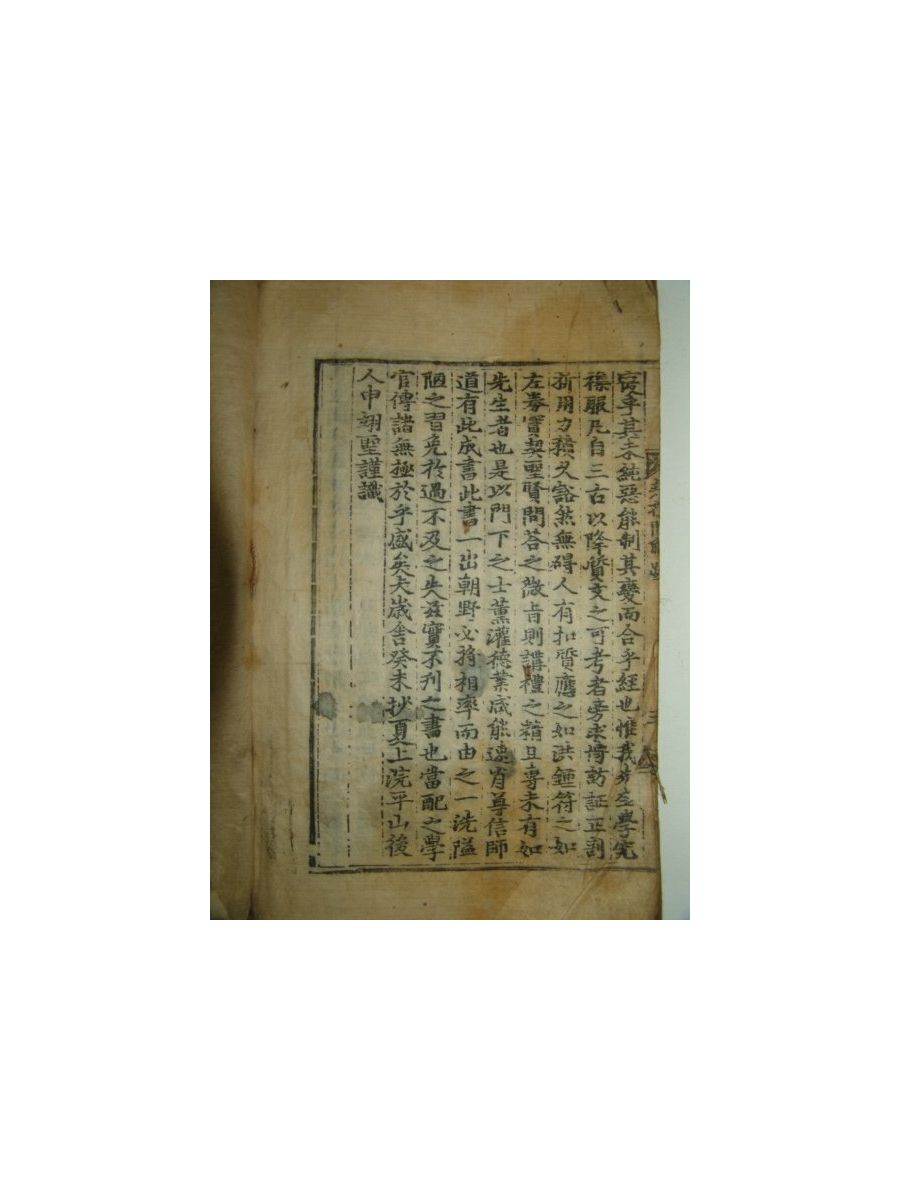 㝡乎其未純惡能制其變而合乎經也惟我先生學究
襍服凡自三古以降質文之可考者旁求博訪証正剖
析用力積久豁然無碍人有扣質應之如洪鍾符之如
左劵實契聖賢問荅之微旨則講禮之藉且專未有如
先生者也是以門下之士薰灌德業咸能速肖尊信師
道有此成書此書一出朝野必將相率而由之一洗隘
陋之習免於過不及之失玆實不刊之書也當配之學
官傳諸無極於乎盛矣夫歲舍癸未抄夏上浣平山後
人申翊聖謹識